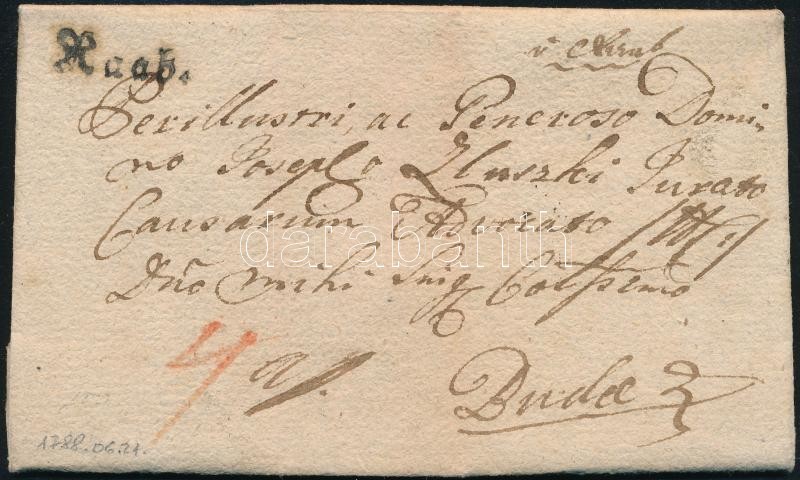 Raab.
Perillustri, ac Generoso Domi-
no Josepho Zluszki Jurato
Causarum Advocato
Dno mihi Sing Colssmo
Budæ
4
1788.06.21.
darabanth